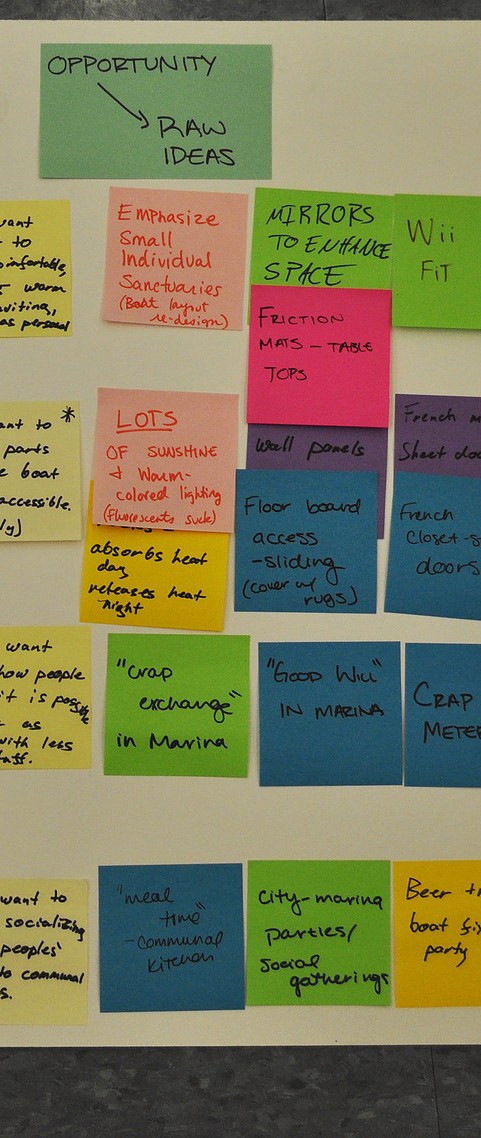 OPPORTUNITY
RAW
IDEAS
want
to
warm
as personal
Emphasize
Small
Individual
Sanctuaries
(Boat layout
re-design)
MIRRORS
TO ENHANCE
SPACE
FRICTION
MATS - TABLE
TOPS
Wii
FiT
to
parts
boat
accessible.
*
LOTS
OF SUNSHINE
& Warm-
colored lighting
(Fluorescents suck)
absorbs heat
day
releases heat
night
Wall panels
Floor board
access
-sliding
(cover w/
rugs)
French
Sheet
French
Closet-s
doors
want
how people
it is possible
as
with less
"Crap
exchange"
in Marina
"GOOD WILL"
IN MARINA
CRAP
METER
want to
socializing
peoples'
to communal
"meal
time"
-communal
kitchen
City-marina
parties/
Social
gatherings
Beer
boat
party